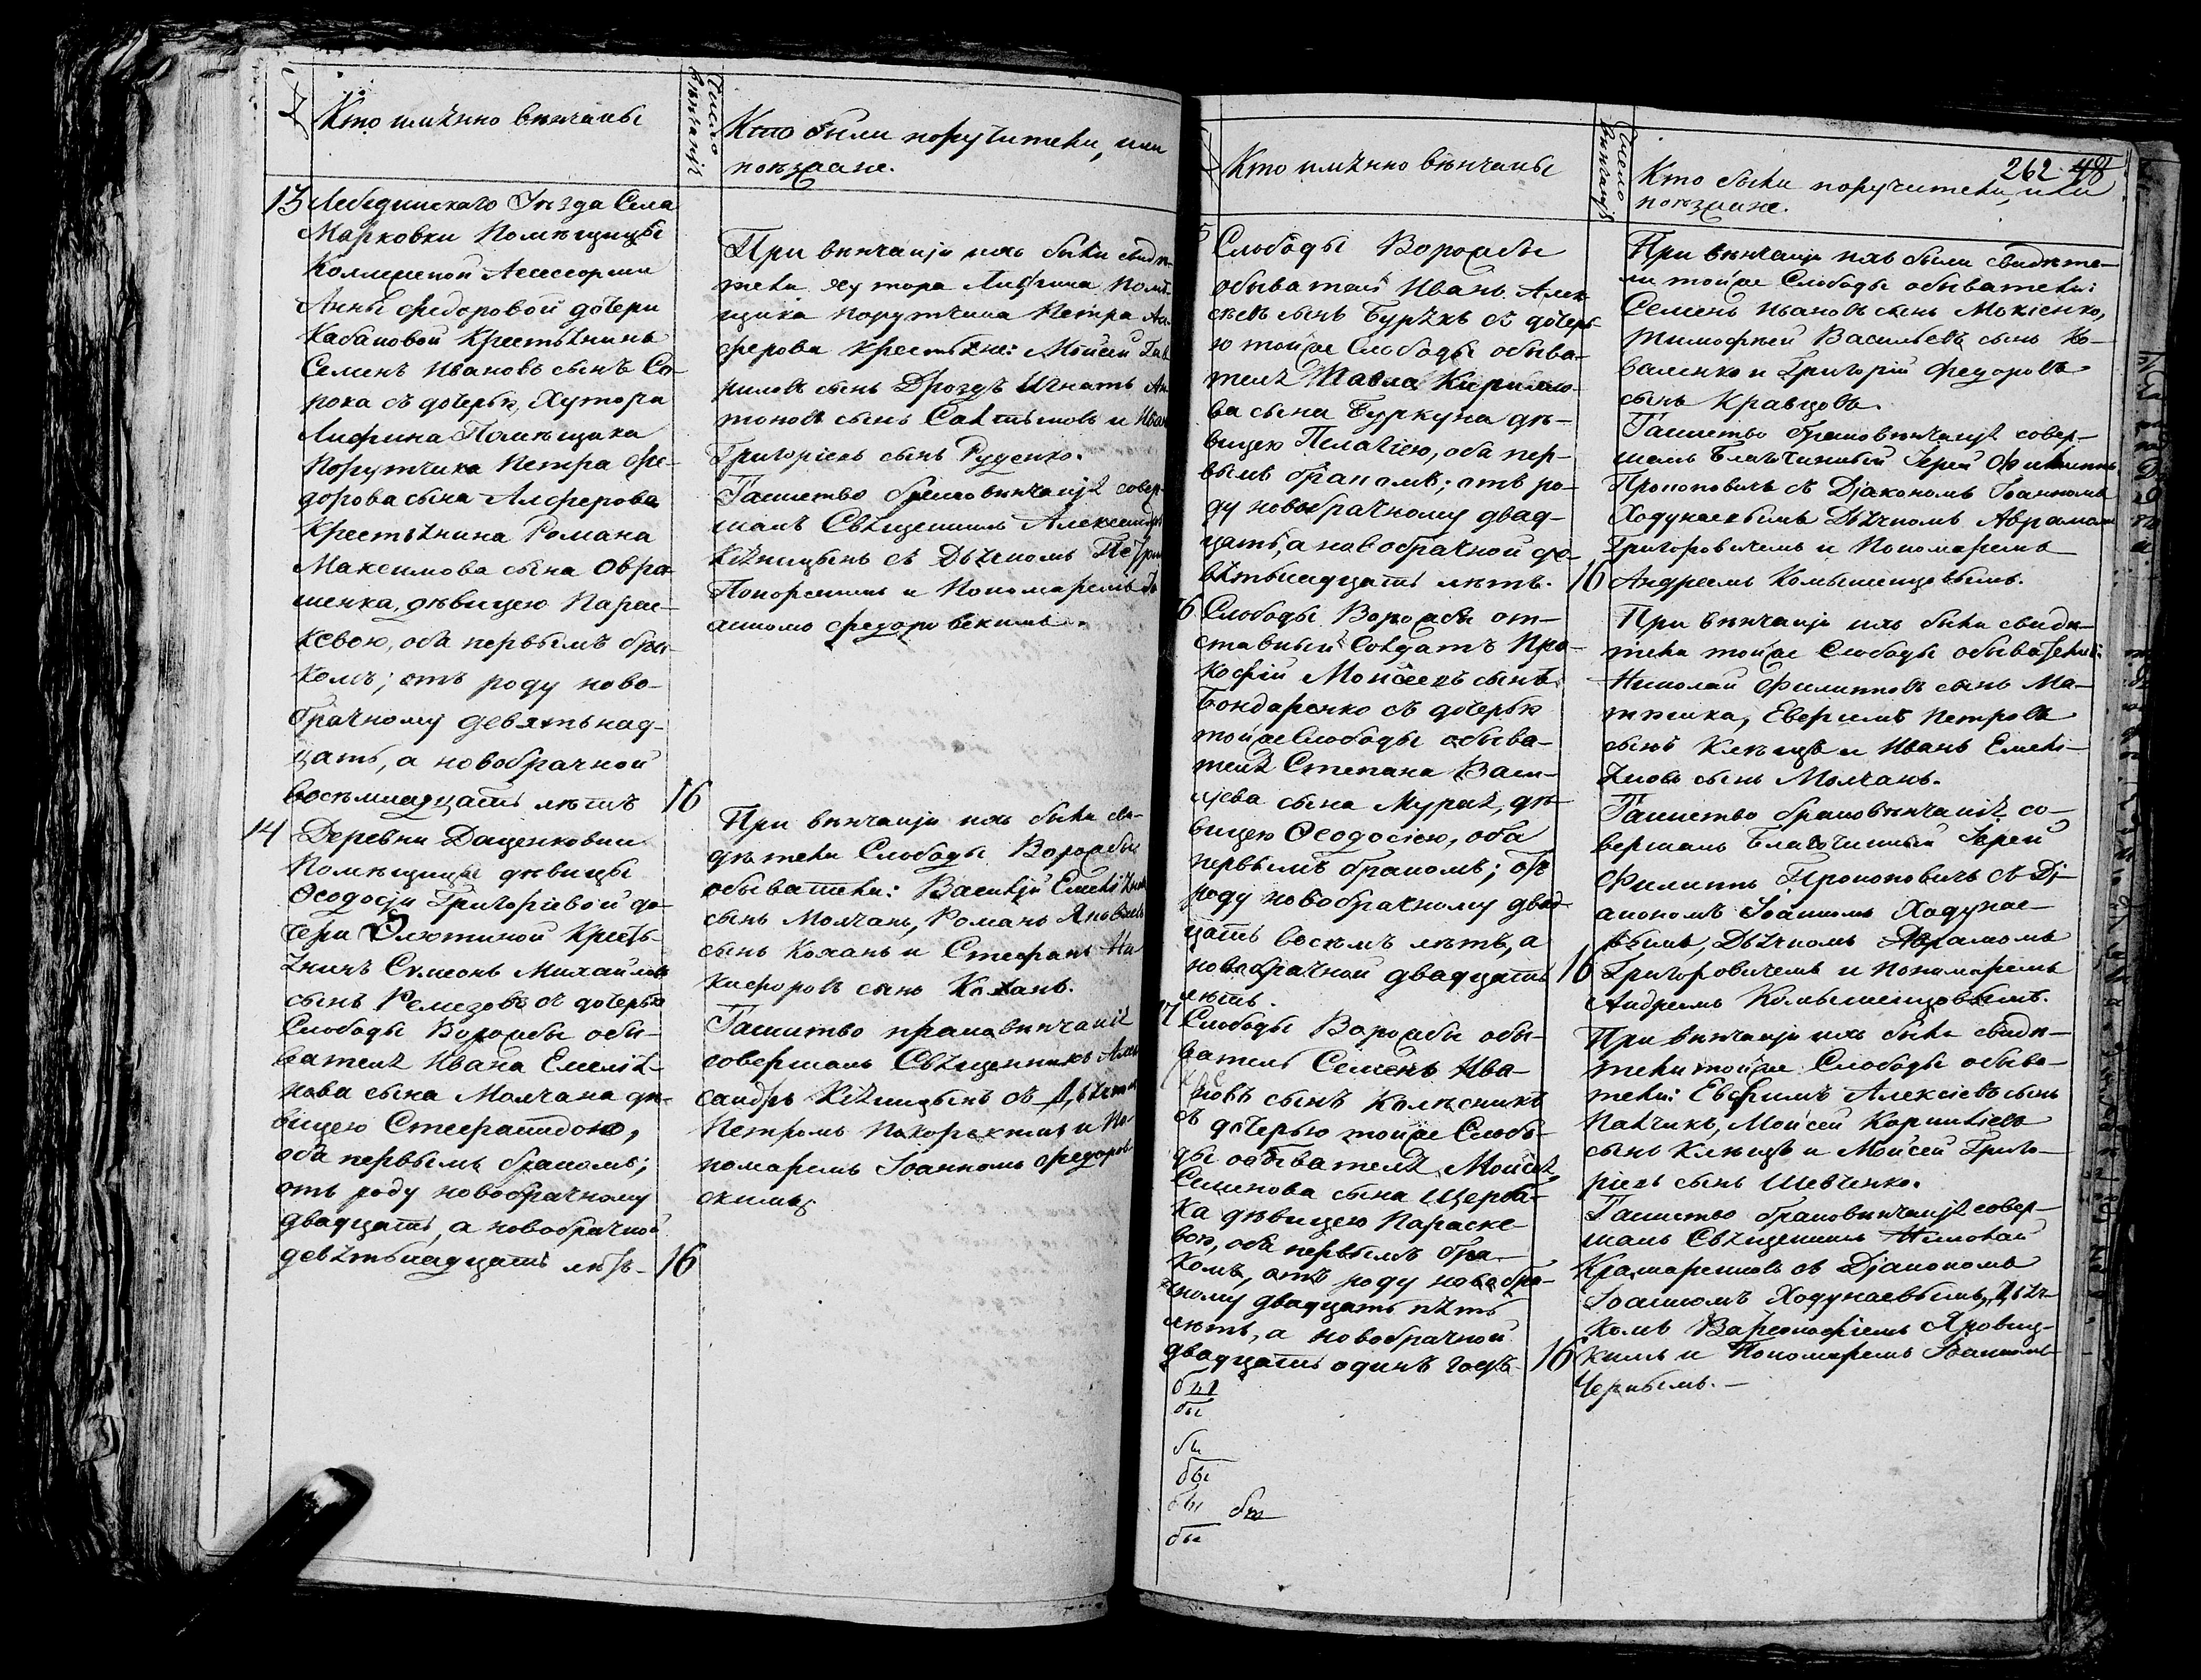 Кто имянно венчаны
Число венчанія
Кто были поручители, или
поезжане.
13 Лебединскаго Уезда Села
Марковки Помѣщицы
Коллежской Асессорши
Анны Федоровой дочери
Кабановой Крестьянинъ
Семенъ Ивановъ сынъ Со-
рока съ дочерью, Хутора
Лифина Помѣщика
Порутчика Петра Фе-
дорова сына Алферова
Крестьянина Романа
Максимова сына Обра-
менка, дѣвицею Парас-
кевою, оба первымъ бра-
комъ; отъ роду ново-
брачному девятьнад-
цать, а новобрачной
восемнадцать лѣтъ 16
При вѣнчаніи ихъ были свидѣ-
тели хутора Лифина Помѣ-
щика порутчика Петра Ал-
ферова крестьяне: Мойсей Гав-
риловъ сынъ Дроздъ Игнатъ Ан-
тоновъ сынъ и Иван
Григоріевъ сынъ Руденко.
Таинство браковѣнчанія совер-
шалъ Священникъ Александръ
Княжицынъ съ Дьячкомъ Петром
и Пономаремъ Іо-
анномъ Федоровскимъ.
14 Деревни Даценковки
Помѣщицы дѣвицы
Ѳеодосіи Григорьевой до-
чери Олютиной Кресть-
янинъ Симеонъ Михайловъ
сынъ Ремезовъ съ дочерью
Слободы Ворожбы обы-
вателя Ивана Емелія-
нова сына Молчана дѣ-
вицею Стефанидою,
оба первымъ бракомъ;
отъ роду новобрачному
двадцать, а новобрачной
девятьнадцать лѣтъ- 16
При вѣнчаніи ихъ были сви-
дѣтели Слободы Ворожбы
обыватели: Василій Емеліянов
сынъ Молчанъ, Романъ Яковлевъ
сынъ Коханъ и Стефанъ Ни-
кифоровъ сынъ Коханъ.
Таинство браковѣнчанія
совершалъ Священникъ Алек-
сандръ Княжицынъ съ Дьячком
Петромъ и По-
номаремъ Іоанномъ Федоров-
скимъ.
Кто имянно вѣнчаны
Число вѣнчанія
262 48
Кто были поручители, или
поезжане.
5 Слободы Ворожбы
обыватель Иванъ Алек-
сѣевъ сынъ Бурякъ съ дочерь-
ю тойже Слободы обыва-
теля Павла Кирилло-
ва сына Буркуна дѣ-
вицею Пелагіею, оба пер-
вымъ бракомъ; отъ ро-
ду новобрачному двад-
цать, а новобрачной де-
вятьнадцать лѣтъ. 16
При вѣнчаніи ихъ были свидѣте-
ли тойже Слободы обыватели:
Семенъ Ивановъ сынъ Мокіенко,
Тимофѣй Васильевъ сынъ Ко-
валенко и Григорій Федоровъ
сынъ Кравцовъ.
Таинство браковѣнчанія совер-
шалъ Благочинный Іерей Филиппъ
Прокоповичъ съ Діакономъ Іоанномъ
Ходунаевымъ Дьячкомъ Аврамомъ
Григоровичемъ и Пономаремъ
Андреемъ Комышенцовымъ.
16 Слободы Ворожбы от-
ставный Солдатъ Про-
кофій Мойсеевъ сынъ
Бондаренко съ дочерью
тойже Слободы обыва-
теля Степана Васи-
ліева сына Мурая, дѣ-
вицею Ѳеодосіею, оба
первымъ бракомъ; отъ
роду новобрачному двад-
цать восемъ лѣтъ, а
новобрачной двадцать 16
лѣтъ.
При вѣнчаніи ихъ были свидѣ-
тели тойже Слободы обыватели:
Николай Филипповъ сынъ Ма-
тяшка, Евфимъ Петровъ
сынъ Клѣщъ и Иванъ Емелі-
яновъ сынъ Молчанъ.
Таинство браковѣнчанія со-
вершалъ Благочинный Іерей
Филиппъ Прокоповичъ съ Ді-
акономъ Іоанномъ Ходунае-
вымъ, Дьячкомъ Аврамомъ
Григоровичемъ и пономаремъ
Андреемъ Комышенцовымъ.
17 Слободы Ворожбы обы-
ватель Семенъ Ива-
новъ сынъ Колѣсникъ
съ дочерью тойже Слобо-
ды обывателя Мойсея
Семенова сына Щерба-
ка дѣвицею Параске-
вою, оба первымъ бра-
комъ, отъ роду новобра-
чному двадцать пять
лѣтъ, а новобрачной
двадцать одинъ годъ 16
При вѣнчаніи ихъ были свидѣ-
тели тойже Слободы обыва-
тели: Евфимъ Алексіевъ сынъ
Палчикъ, Мойсей Корниліевъ
сынъ Клѣщъ и Мойсей Григо-
ріевъ сынъ Шевченко.
Таинство браковѣнчанія совер-
шалъ Священникъ Николай
Крамаренковъ съ Діакономъ
Іоанномъ Ходунаевымъ, Дьяч-
комъ Варѳоломѣемъ Яровиц-
кимъ и Пономаремъ Іоанномъ
Чернымъ.-